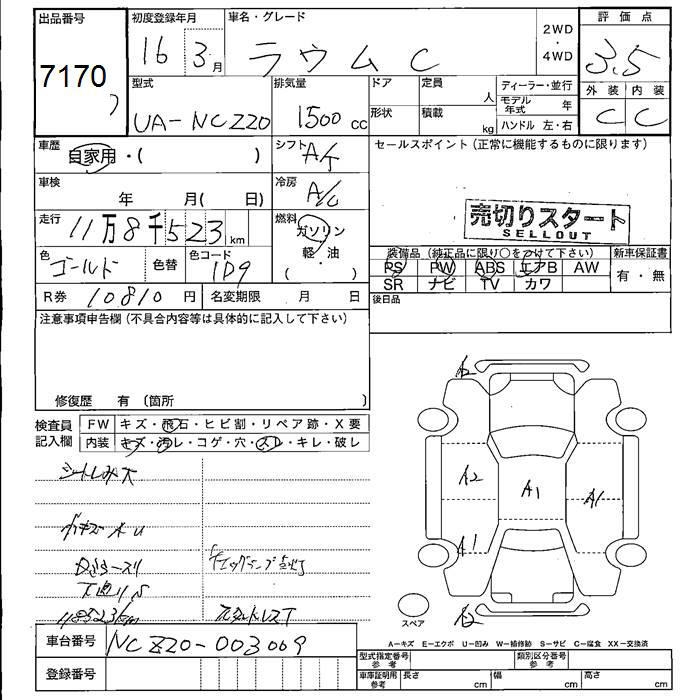 出品番号
7170
初度登録年月
16 3月
車名・グレード
ラウム C
2WD
・
4WD
評価点
3.5
外装 内装
C C
型式
UA-NCZ20
排気量
1500 cc
ドア
定員
人
形状
積載
kg
ディーラー・並行
モデル年式 年
ハンドル 左・右
車歴
自家用・( )
シフト
A/T
セールスポイント(正常に機能するものに限ります)
車検
年 月( 日)
冷房
A/C
走行
11万8千523km
燃料
ガソリン
軽・油
( )
売切りスタート
SELLOUT
色
ゴールド
色替
色コード
1D9
装備品(純正品に限り○をつけて下さい)
新車保証書
PS PW ABS エアB AW
有・無
SR ナビ TV カワ
R券 10810円
名変期限 月 日
後日品
注意事項申告欄(不具合内容等は具体的に記入して下さい)
修復歴 有 (箇所 )
検査員記入欄
FW キズ・飛石・ヒビ割・リペア跡・X要
内装 キズ・汚レ・コゲ・穴・スレ・キレ・破レ
118523km
A2
A2
A1
A1
A1
A2
スペア
A-キズ E-エクボ U-凹み W-補修跡 S-サビ C-腐食 XX-交換済
車台番号
NCZ20-003009
登録番号
型式指定番号 参考
類別区分番号 参考
車庫証明用 参考
長さ cm
幅 cm
高さ cm